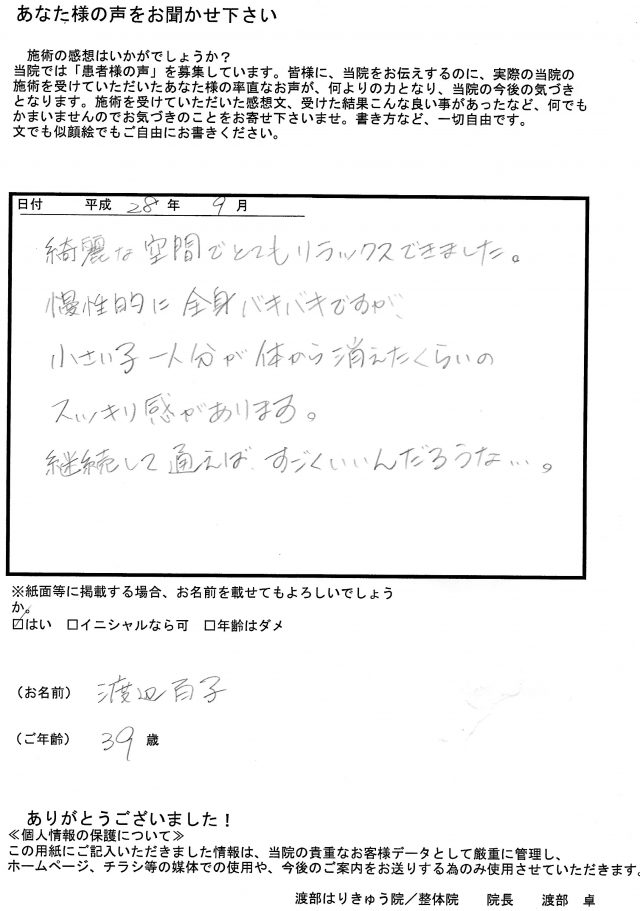 あなた様の声をお聞かせ下さい
施術の感想はいかがでしょうか？
当院では「患者様の声」を募集しています。皆様に、当院をお伝えするのに、実際の当院の
施術を受けていただいたあなた様の率直なお声が、何よりの力となり、当院の今後の気づき
となります。施術を受けていただいた感想文、受けた結果こんな良い事があったなど、何でも
かまいませんのでお気づきのことをお寄せ下さいませ。書き方など、一切自由です。
文でも似顔絵でもご自由にお書きください。
日付 平成 28 年 9 月
綺麗な空間でとてもリラックスできました。
慢性的に全身バキバキですが、
小さい子一人分が体から消えたくらいの
スッキリ感があります。
継続して通えば、すごくいいんだろうな…。
※紙面等に掲載する場合、お名前を載せてもよろしいでしょう
か。
☑はい □イニシャルなら可 □年齢はダメ
（お名前） 渡辺百子
（ご年齢） 39 歳
ありがとうございました！
≪個人情報の保護について≫
この用紙にご記入いただきました情報は、当院の貴重なお客様データとして厳重に管理し、
ホームページ、チラシ等の媒体での使用や、今後のご案内をお送りする為のみ使用させていただきます。
渡部はりきゅう院／整体院 院長 渡部 卓